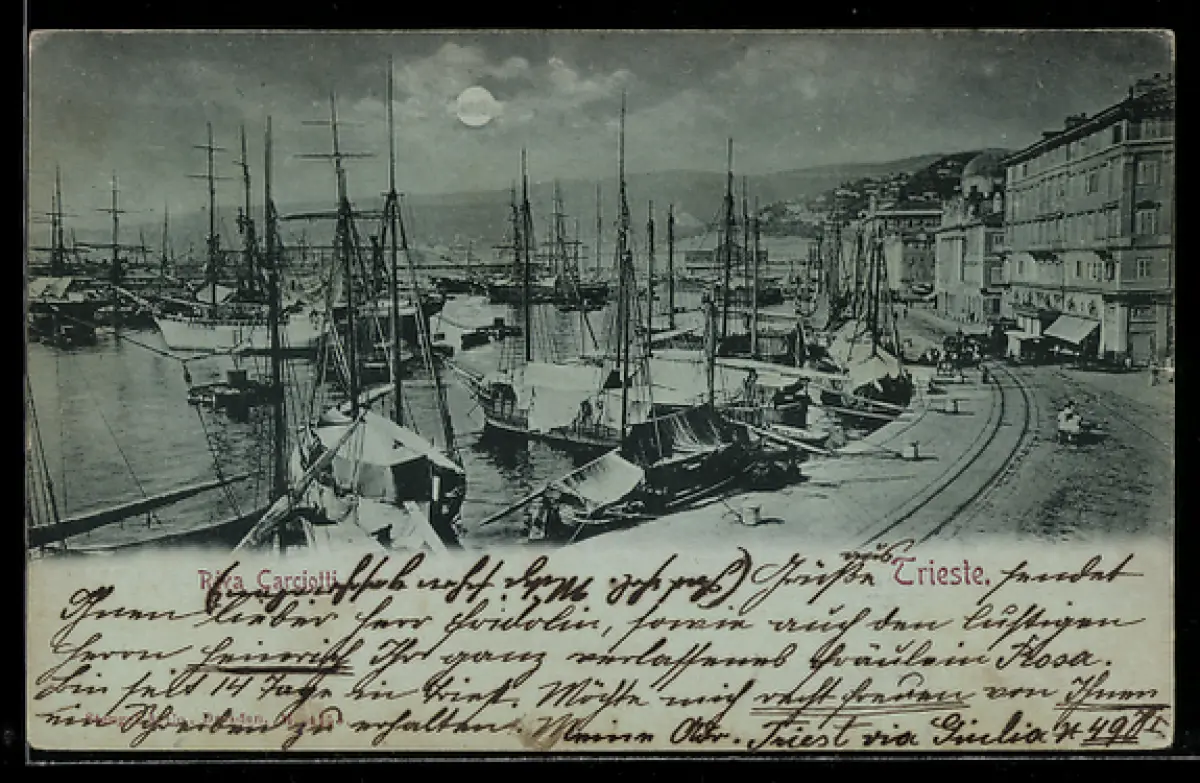 Riva Carciotti
Grüße aus Trieste. sendet
Ihnen lieber Herr Fridolin, sowie auch den lustigen
Herrn Heinrich Ihr ganz verlassenes Fräulein Rosa.
Bin seit 14 Tage in Triest. Möchte mich recht freuen von Ihnen
ein Schreiben zu erhalten. Meine Adr. Triest via Giulia N 498